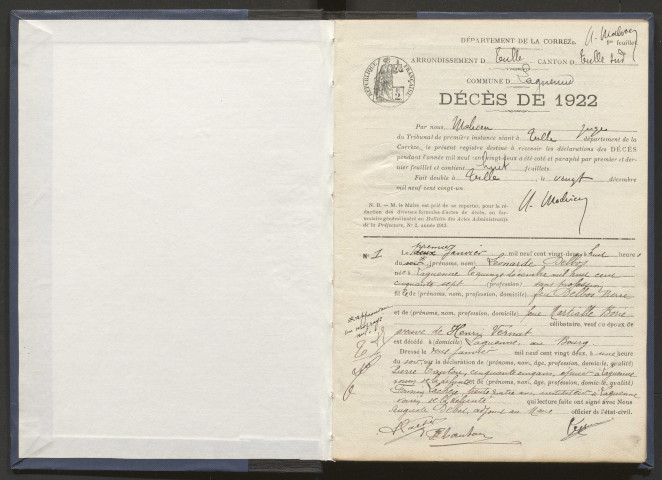 DÉPARTEMENT DE LA CORRÈZE
1er feuillet
ARRONDISSEMENT D Tulle CANTON D Tulle Sud
RÉPUBLIQUE FRANÇAISE
COMMUNE D Laguenne
DÉCÈS DE 1922
Par nous, juge
du Tribunal de première instance séant à Tulle département de la
Corrèze, le présent registre destiné à recevoir les déclarations des DÉCÈS
pendant l'année mil neuf cent vingt-deux a été coté et paraphé par premier et der-
nier feuillet et contient huit feuillets.
Fait double à Tulle, le vingt décembre
mil neuf cent vingt-un.
N. B. — M. le Maire est prié de se reporter, pour la ré-
daction des diverses formules d'actes de décès, au for-
mulaire général inséré au Bulletin des Actes Administratifs
de la Préfecture, No 2, année 1913.
No 1 Le premier janvier mil neuf cent vingt-deux à huit heures
du (prénoms, nom) Léonarde Delbos
né à Laguenne le quinze décembre mil huit cent
cinquante sept (profession) sans profession
fille de (prénoms, nom, profession, domicile) feu Delbos Pierre
et de (prénoms, nom, profession, domicile) feue Martialle
célibataire, veuf ou époux de
Henry Vernat
est décédé à (domicile) Laguenne, au Bourg
Dressé le deux janvier mil neuf cent vingt-deux, à une heure
du soir sur la déclaration de (prénoms, nom, âge, profession, domicile, qualité)
Pierre cinquante cinq ans, à Laguenne
voisin de la défunte et de (prénoms, nom, âge, profession, domicile, qualité)
trente quatre ans instituteur à Laguenne
voisin de la défunte qui lecture faite ont signé avec Nous
Auguste Delbos, adjoint au Maire officier de l'état-civil.